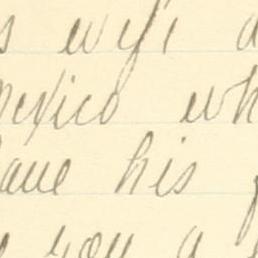 s wife a
Mexico wh
have his
you a